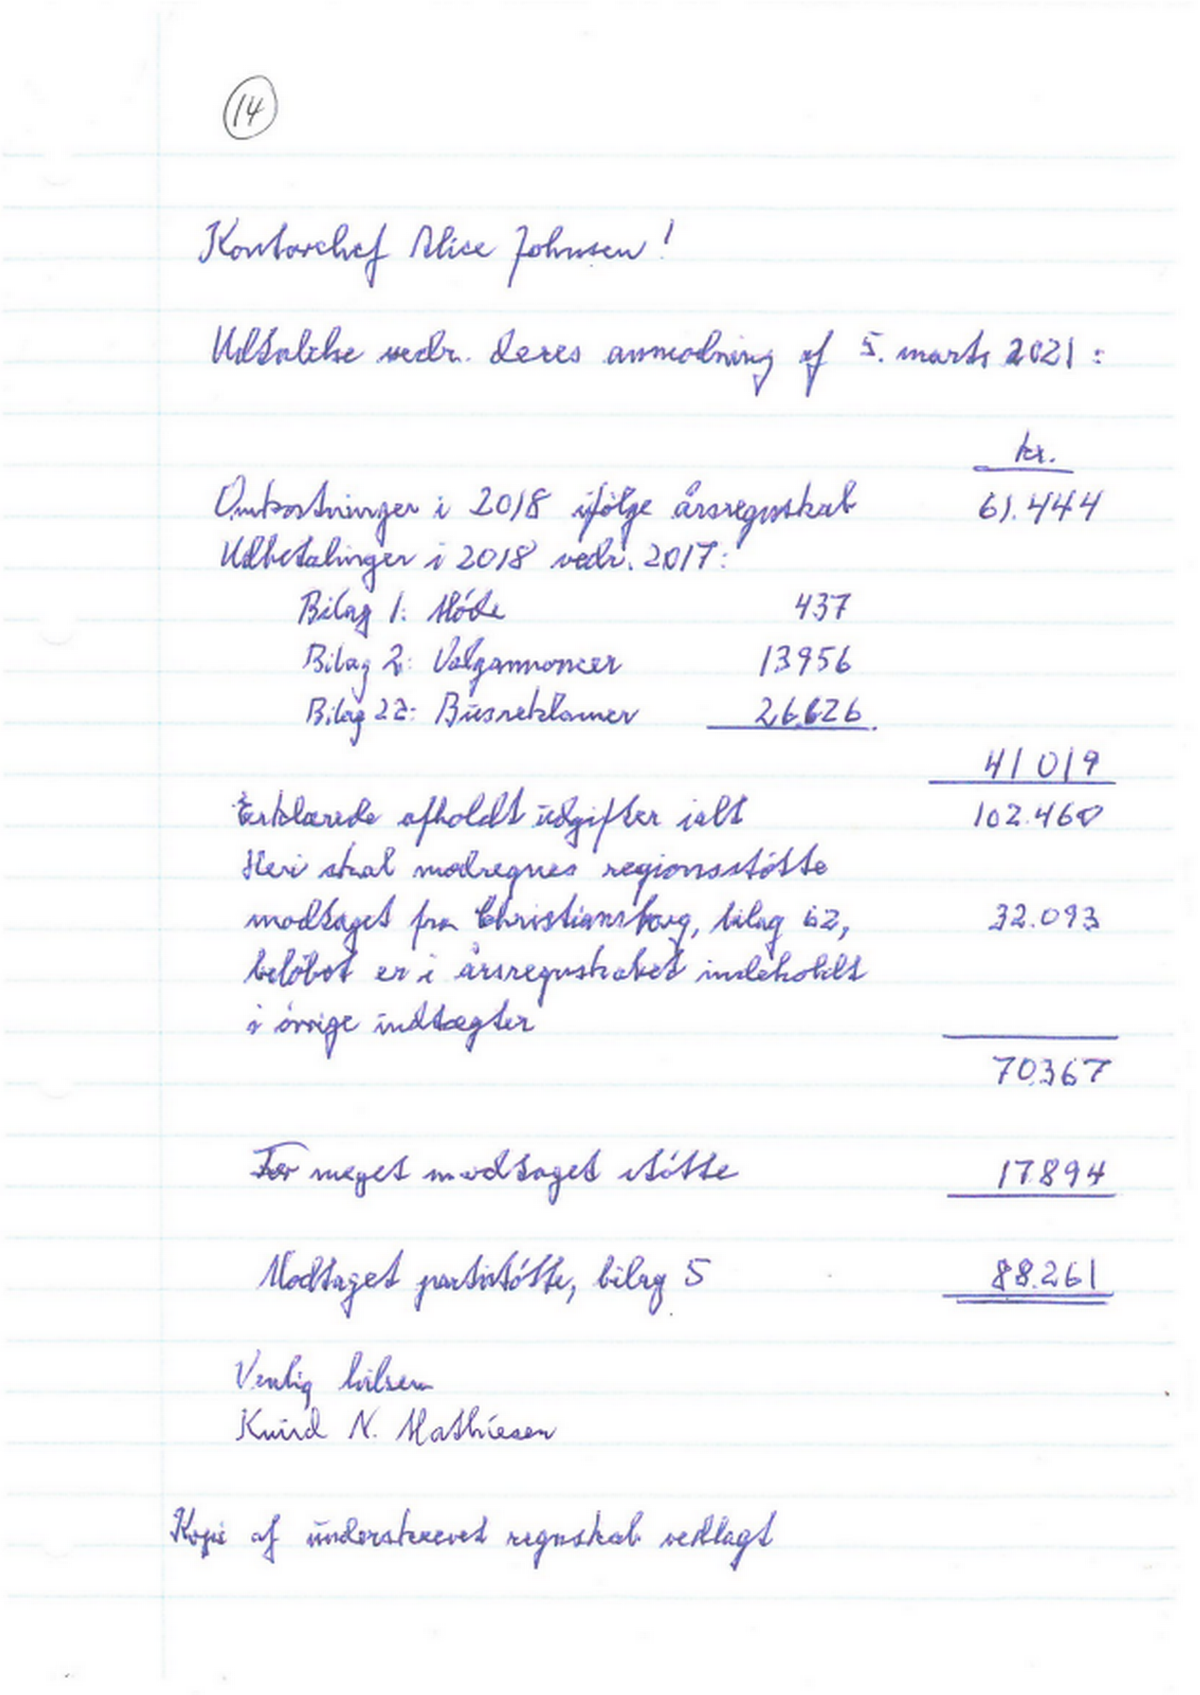 14
Kontorchef Alice Johnsen!
Udtalelse vedr. deres anmodning af 5. marts 2021:
kr.
Omkostninger i 2018 ifølge årsregnskab 61.444
Udbetalinger i 2018 vedr. 2017:
Bilag 1: Møde 437
Bilag 2: Valgannoncer 13956
Bilag 22: Busreklamer 26.626
41019
Erklærede afholdt udgifter ialt 102.460
Heri skal modregnes regionsstøtte
modtaget fra Christiansborg, bilag 62, 32.093
beløbet er i årsregnskabet indeholdt
i øvrige indtægter
70.367
For meget modtaget støtte 17.894
Modtaget partistøtte, bilag 5 88.261
Venlig hilsen
Knud N. Mathiesen
Kopi af underskrevet regnskab vedlagt